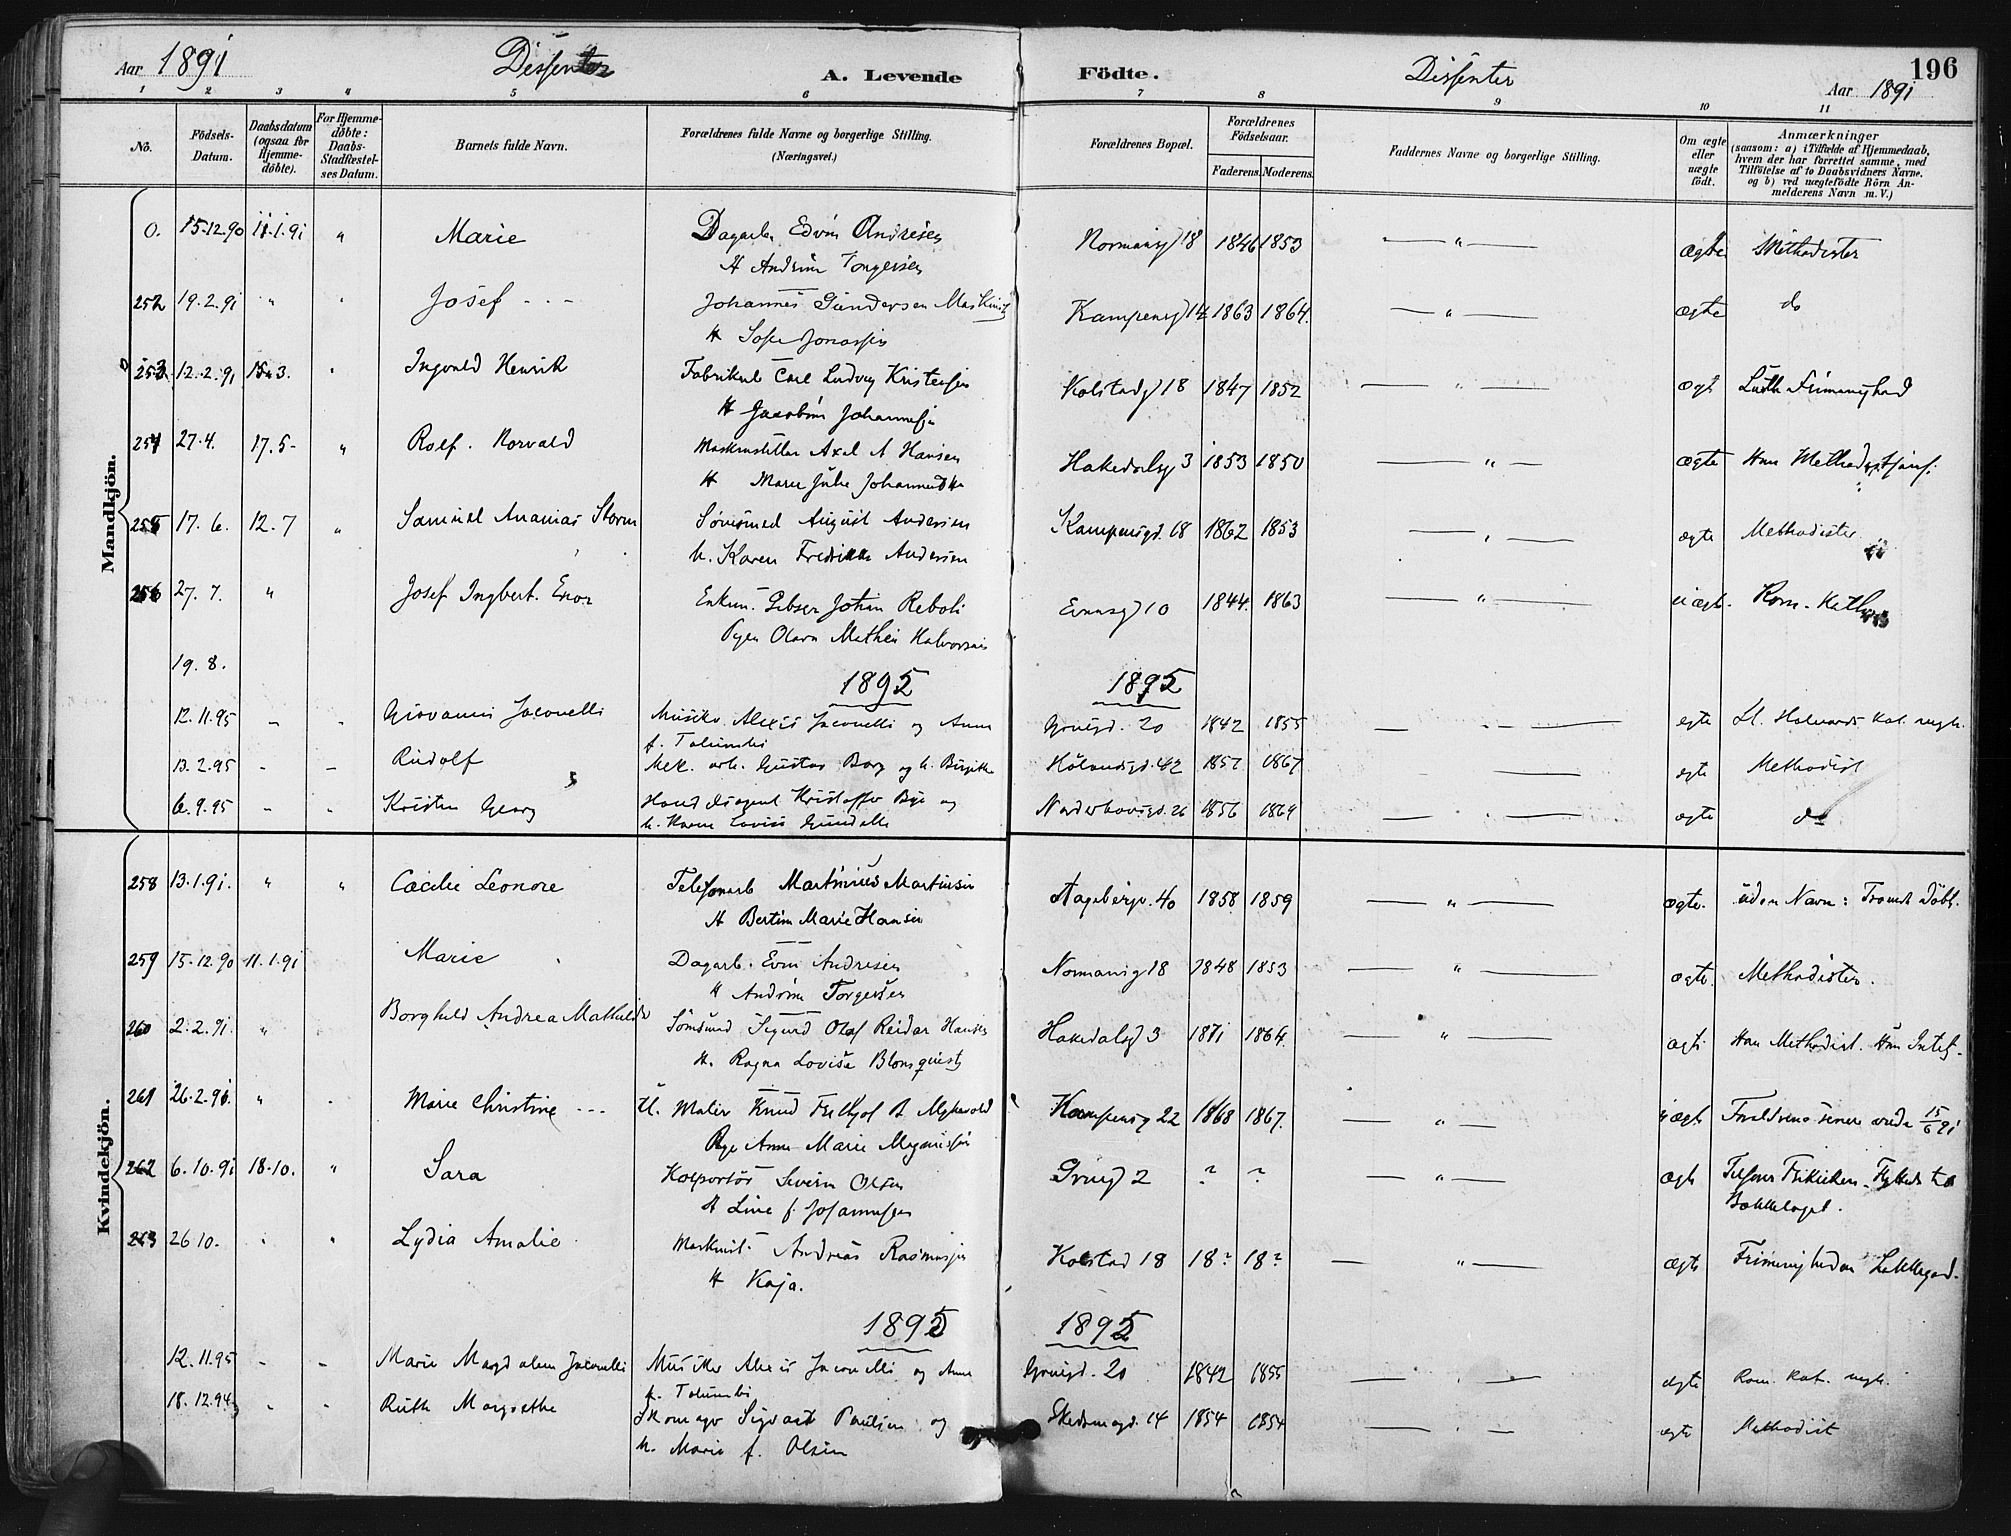 Aar 1891 Dissenter A. Levende Födte. Dissenter Aar 1891 196
1 2 3 4 5 6 7 8 9 10 11
No. Födsels-Datum. Daabsdatum (ogsaa for Hjemmedøbte). For Hjemmedøbte: Daabs-Stadfæstelses Datum. Barnets fulde Navn. Forældrenes fulde Navne og borgerlige Stilling. (Næringsvei.) Forældrenes Bopæl. Forældrenes Födselsaar. Faderens. Moderens. Faddernes Navne og borgerlige Stilling. Om ægte eller uægte født. Anmærkninger (saasom: a) i Tilfælde af Hjemmedaab, hvem der har forrettet samme, med Tilföielse af to Daabsvidners Navne, og b) ved uægtefödte Börn Anmelderens Navn m. V.)
Mandkjön.
0. 15.12.90 11.1.91 " Marie Dagarb. Edvin Andresen Normannsg 18 1846 1853 " ægte Methodister
H Andrine Torgersen
252 19.2.91 " " Josef Johannes Gundersen Maskinist Kampensg 14 1863 1864. " ægte do
H Sofie Jonassen
253 12.2.91 15.3. " Ingvald Henrik Fabrikarb Carl Ludvig Kristensen Kolstadg 18 1847 1852 " ægt
H Jacobine Johannesen
254 27.4. 17.5 " Rolf. Norvald Axel A Hansen Hakedalsg 3 1853 1850 " ægte
H Marie Julie
255 17.6. 12.7 " Samuel Ananias Storm August Andersen Kampensgd. 18 1862 1853 " ægte Methodister
h. Karen Fredrikke Andersen
256 27.7. " Josef Ingbert. Enor Enkem. Gibser Johan Reboli Ennsg 10 1844. 1863 " uægt. Rom. Kath
Pigen Olava Mathea Halvorsen
19.8.
1895 1895
12.11.95 Giovanni Jaconelli Musiker Alexis Jaconelli og Anna Grønlgd. 20 1842 1855 ægte St. Halvards Kat. mgh.
f. Tolumbi
13.2.95 Rudolf Mek. arb. Gustav Borg og h. Birgitte Hølandsgd. 42 1857 1867 ægte Methodist
6.9.95 Kristen Georg Handelsagent Kristoffer Bye og Norderhovsgd. 26 1856 1864 ægte do
h. Karen Lovise Gundelle
Kvindekjön.
258 13.1.91. " " Cæcilie Leonore Telefonarb Martinius Martinsen Aagebergv. 40 1858 1859 " ægte. uden Navn: Tromsö Döbt.
H Bertine Marie Hansen
259 15.12.90 11.1.91 Marie Dagarb. Evin Andresen Normannsg 18 1848 1853 " ægte. Methodister.
H Andrine Torgersen
260 2.2.91. " Borghild Andrea Mathilde Sömsmed Sigurd Olaf Reidar Hansen Hakedalsg 3 1871 1864. " ægte Han Methodist. Hun
H. Ragna Lovise Blomquist
261 26.2.91. " Marie Christine U. Maler Knud Fritjof Kampensg 22 1868 1867. " uægt Forældrene senere viede 15/6 91
Pige Anne Marie Magnussen
262 6.10.91 18.10. " Sara Kolportör Severin Olsen Grönlg 2 ? ? " ægte Frikirken. Flyttede til
H Line f. Johannesen Bækkelaget.
263 26 10. " " Lydia Amalie Maskinist Andreas Rasmussen Kolstad 18 18? 18? " ægte Frimenigheden Lakkegad.
H Kaja.
1895 1895
12.11.95 Marie Magdalena Jaconelli Musiker Alexis Jaconelli og Anna Grønlgd. 20 1842 1855 ægte Rom. Kat. mgh.
f. Tolumbi
18.12.94 Ruth Margrethe Skomager Sigvart Paulsen og Skedsmogd. 14 1854 1854 ægte Methodist
h. Marie f. Olsen